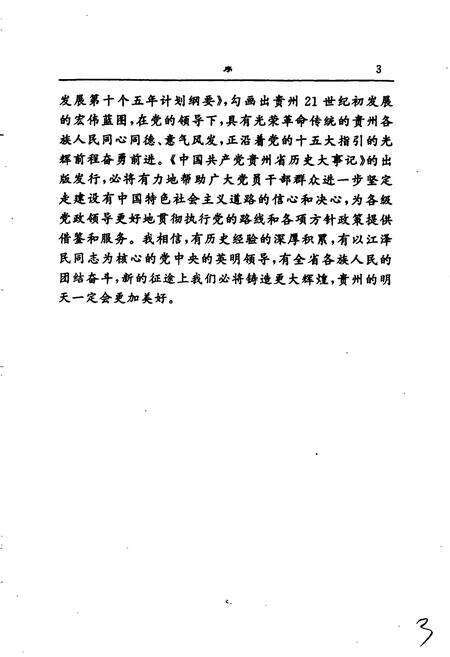 序 3
发展第十个五年计划纲要》，勾画出贵州 21 世纪初发展
的宏伟蓝图，在党的领导下，具有光荣革命传统的贵州各
族人民同心同德、意气风发，正沿着党的十五大指引的光
辉前程奋勇前进。《中国共产党贵州省历史大事记》的出
版发行，必将有力地帮助广大党员干部群众进一步坚定
走建设有中国特色社会主义道路的信心和决心，为各级
党政领导更好地贯彻执行党的路线和各项方针政策提供
借鉴和服务。我相信，有历史经验的深厚积累，有以江泽
民同志为核心的党中央的英明领导，有全省各族人民的
团结奋斗，新的征途上我们必将铸造更大辉煌，贵州的明
天一定会更加美好。
3